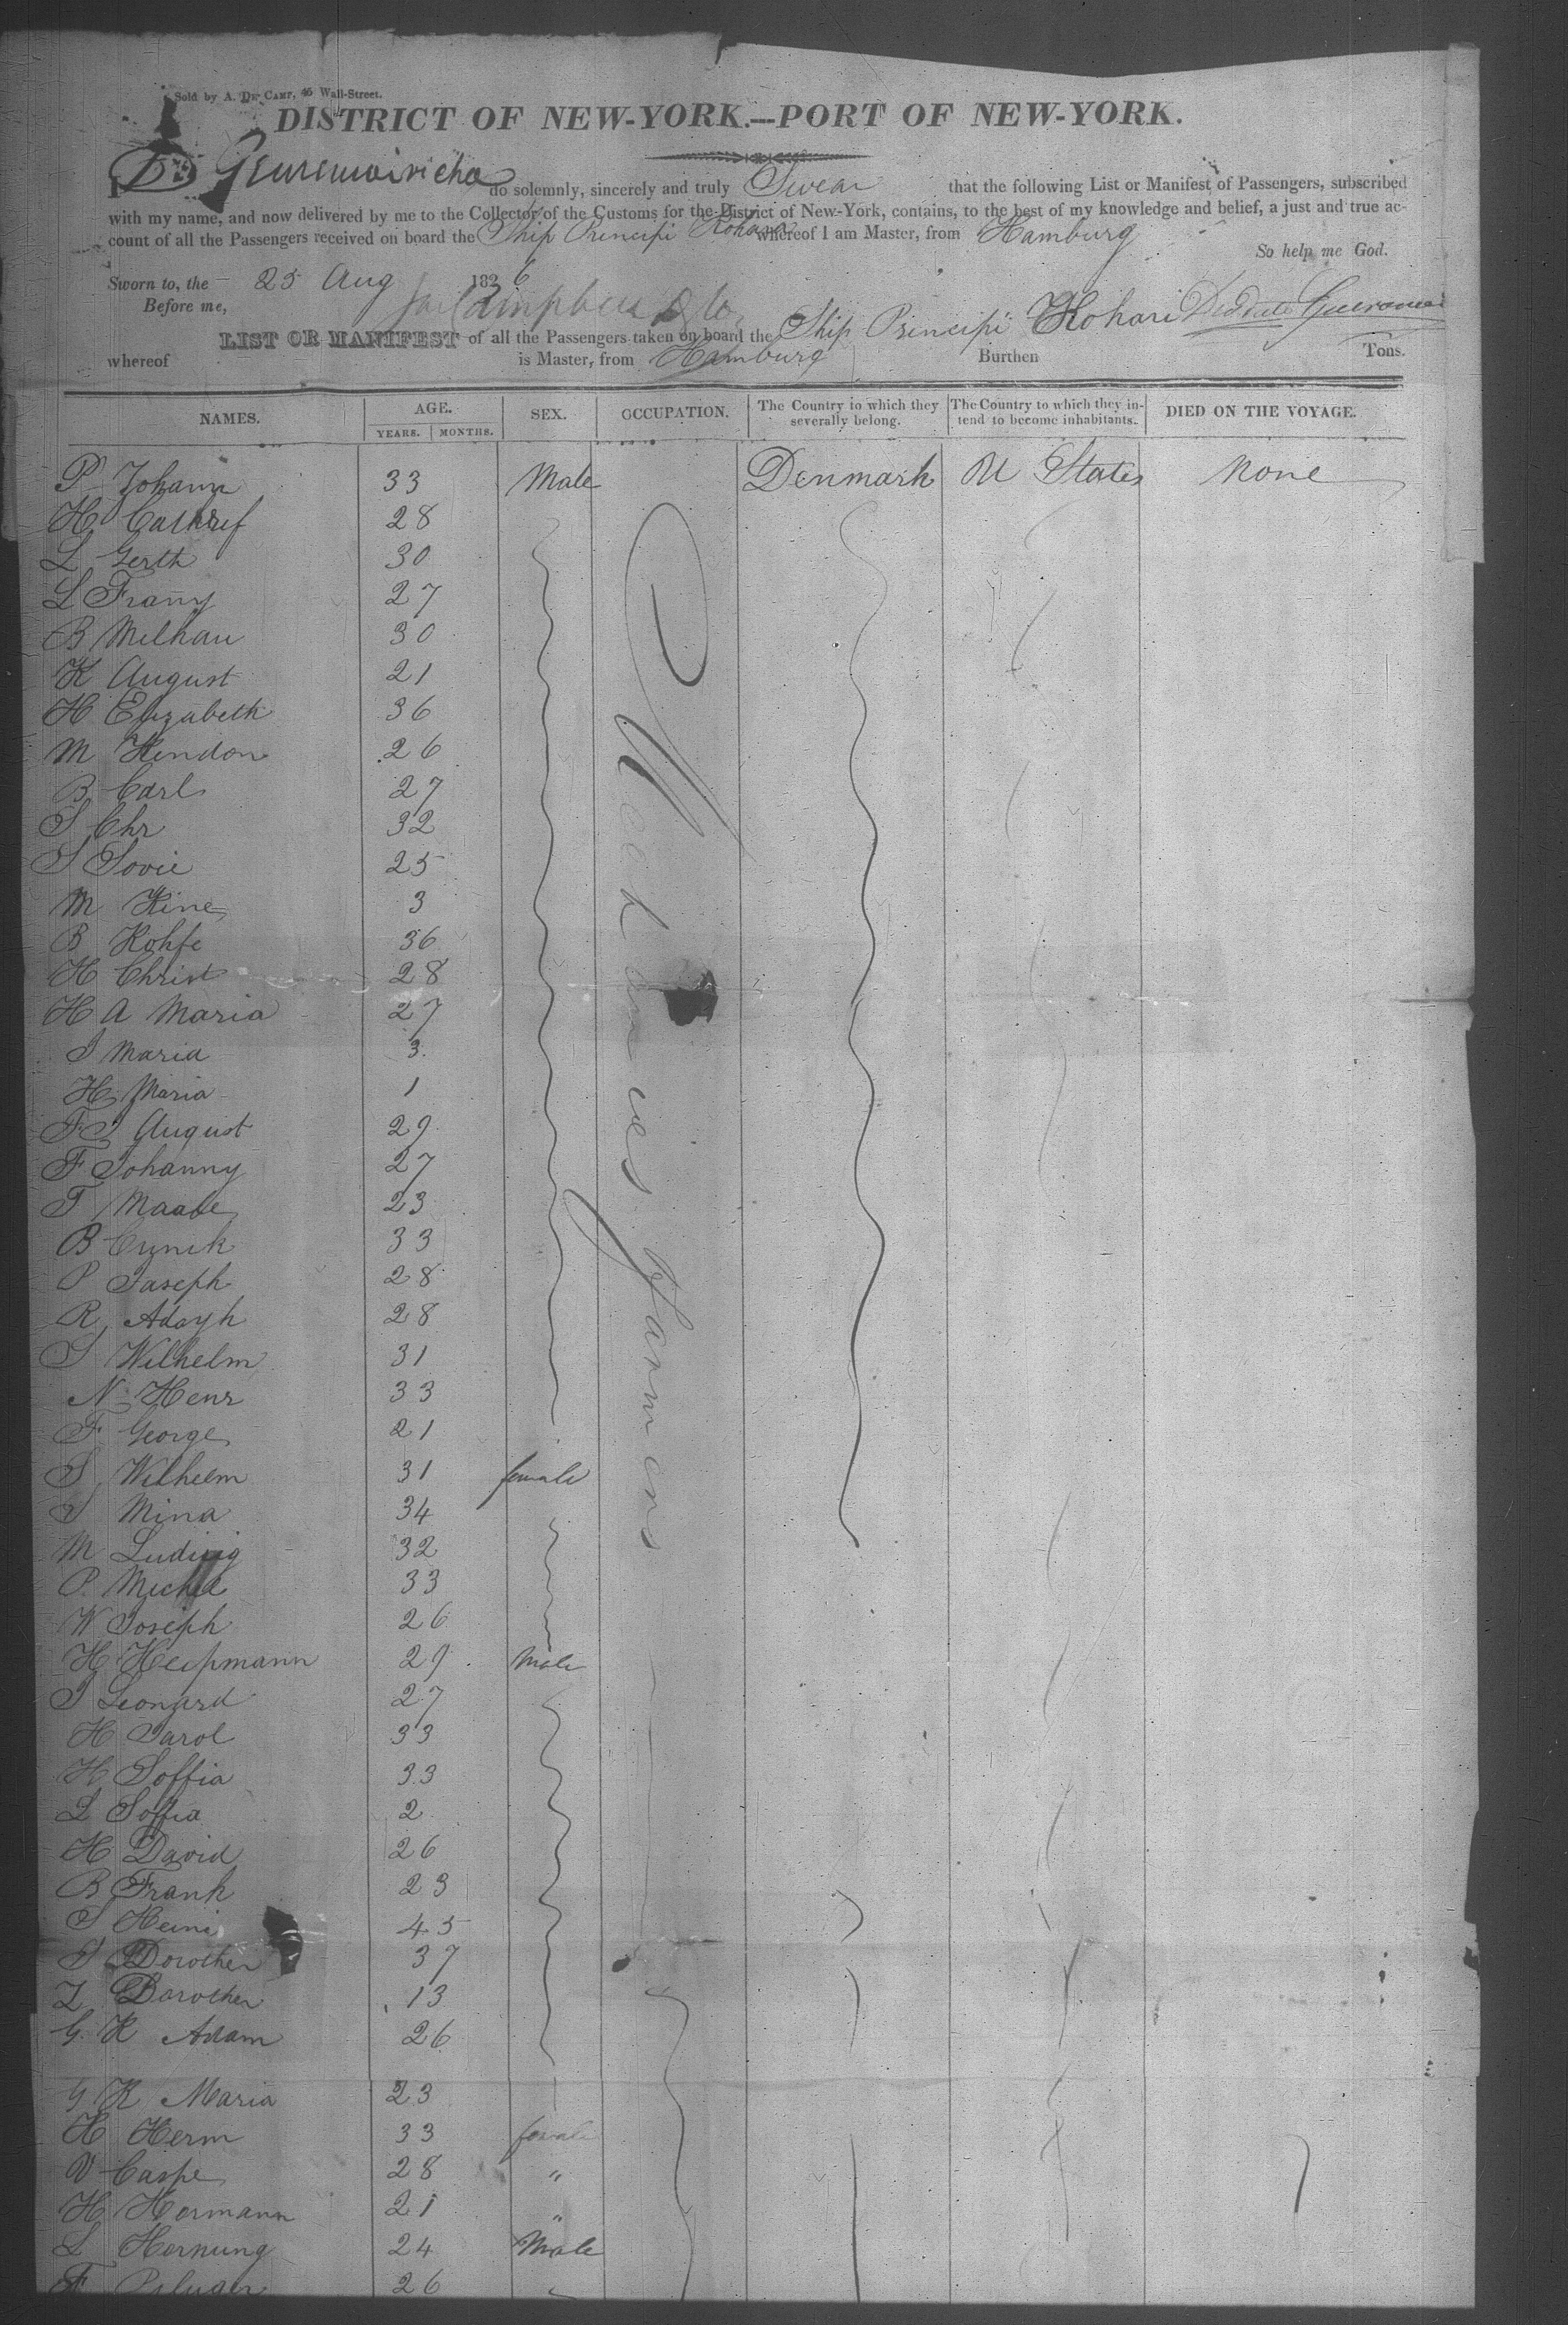 Sold by A. DE CAMP, 45 Wall-Street.
DISTRICT OF NEW-YORK.—PORT OF NEW-YORK.
I do solemnly, sincerely and truly Swear that the following List or Manifest of Passengers, subscribed
with my name, and now delivered by me to the Collector of the Customs for the District of New-York, contains, to the best of my knowledge and belief, a just and true ac-
count of all the Passengers received on board the Ship Principi Kohari whereof I am Master, from Hamburg
So help me God.
Sworn to, the 25 Aug 1836
Before me,
LIST OR MANIFEST of all the Passengers taken on board the Ship Principi Kohari
whereof is Master, from Hamburg Burthen Tons.
NAMES. AGE. YEARS. MONTHS. SEX. OCCUPATION. The Country to which they severally belong. The Country to which they in-tend to become inhabitants. DIED ON THE VOYAGE.
P Johann 33 Male Denmark U States None
H 28
L Gerth 30
L Frany 27
B Milhau 30
K August 21
H Elizabeth 36
M Hendon 26
B Carl 27
S Chr 32
S Sovie 25
M Kine 3
B Kohfe 36
H Christ 28
H A Maria 27
S Maria 3
H Maria 1
F S August 29
F Johanny 27
F Maabe 23
B 33
P Joseph 28
R 28
S Wilhelm 31
N Henr 33
F George 21
S Wilhelm 31 female
S Mina 34
M Ludwig 32
P. Michel 33
W Joseph 26
H 29 Male
S Leonard 27
H Sarol 33
H Soffia 33
L Soffia 2
H David 26
B Frank 23
S Heini 45
S Dorother 37
L Dorother 13
G. K Adam 26
G K Maria 23
H Herm 33 female
V Caspe 28 "
H Hermann 21 "
L Hornung 24 Male
F 26
Mechanics Farmers